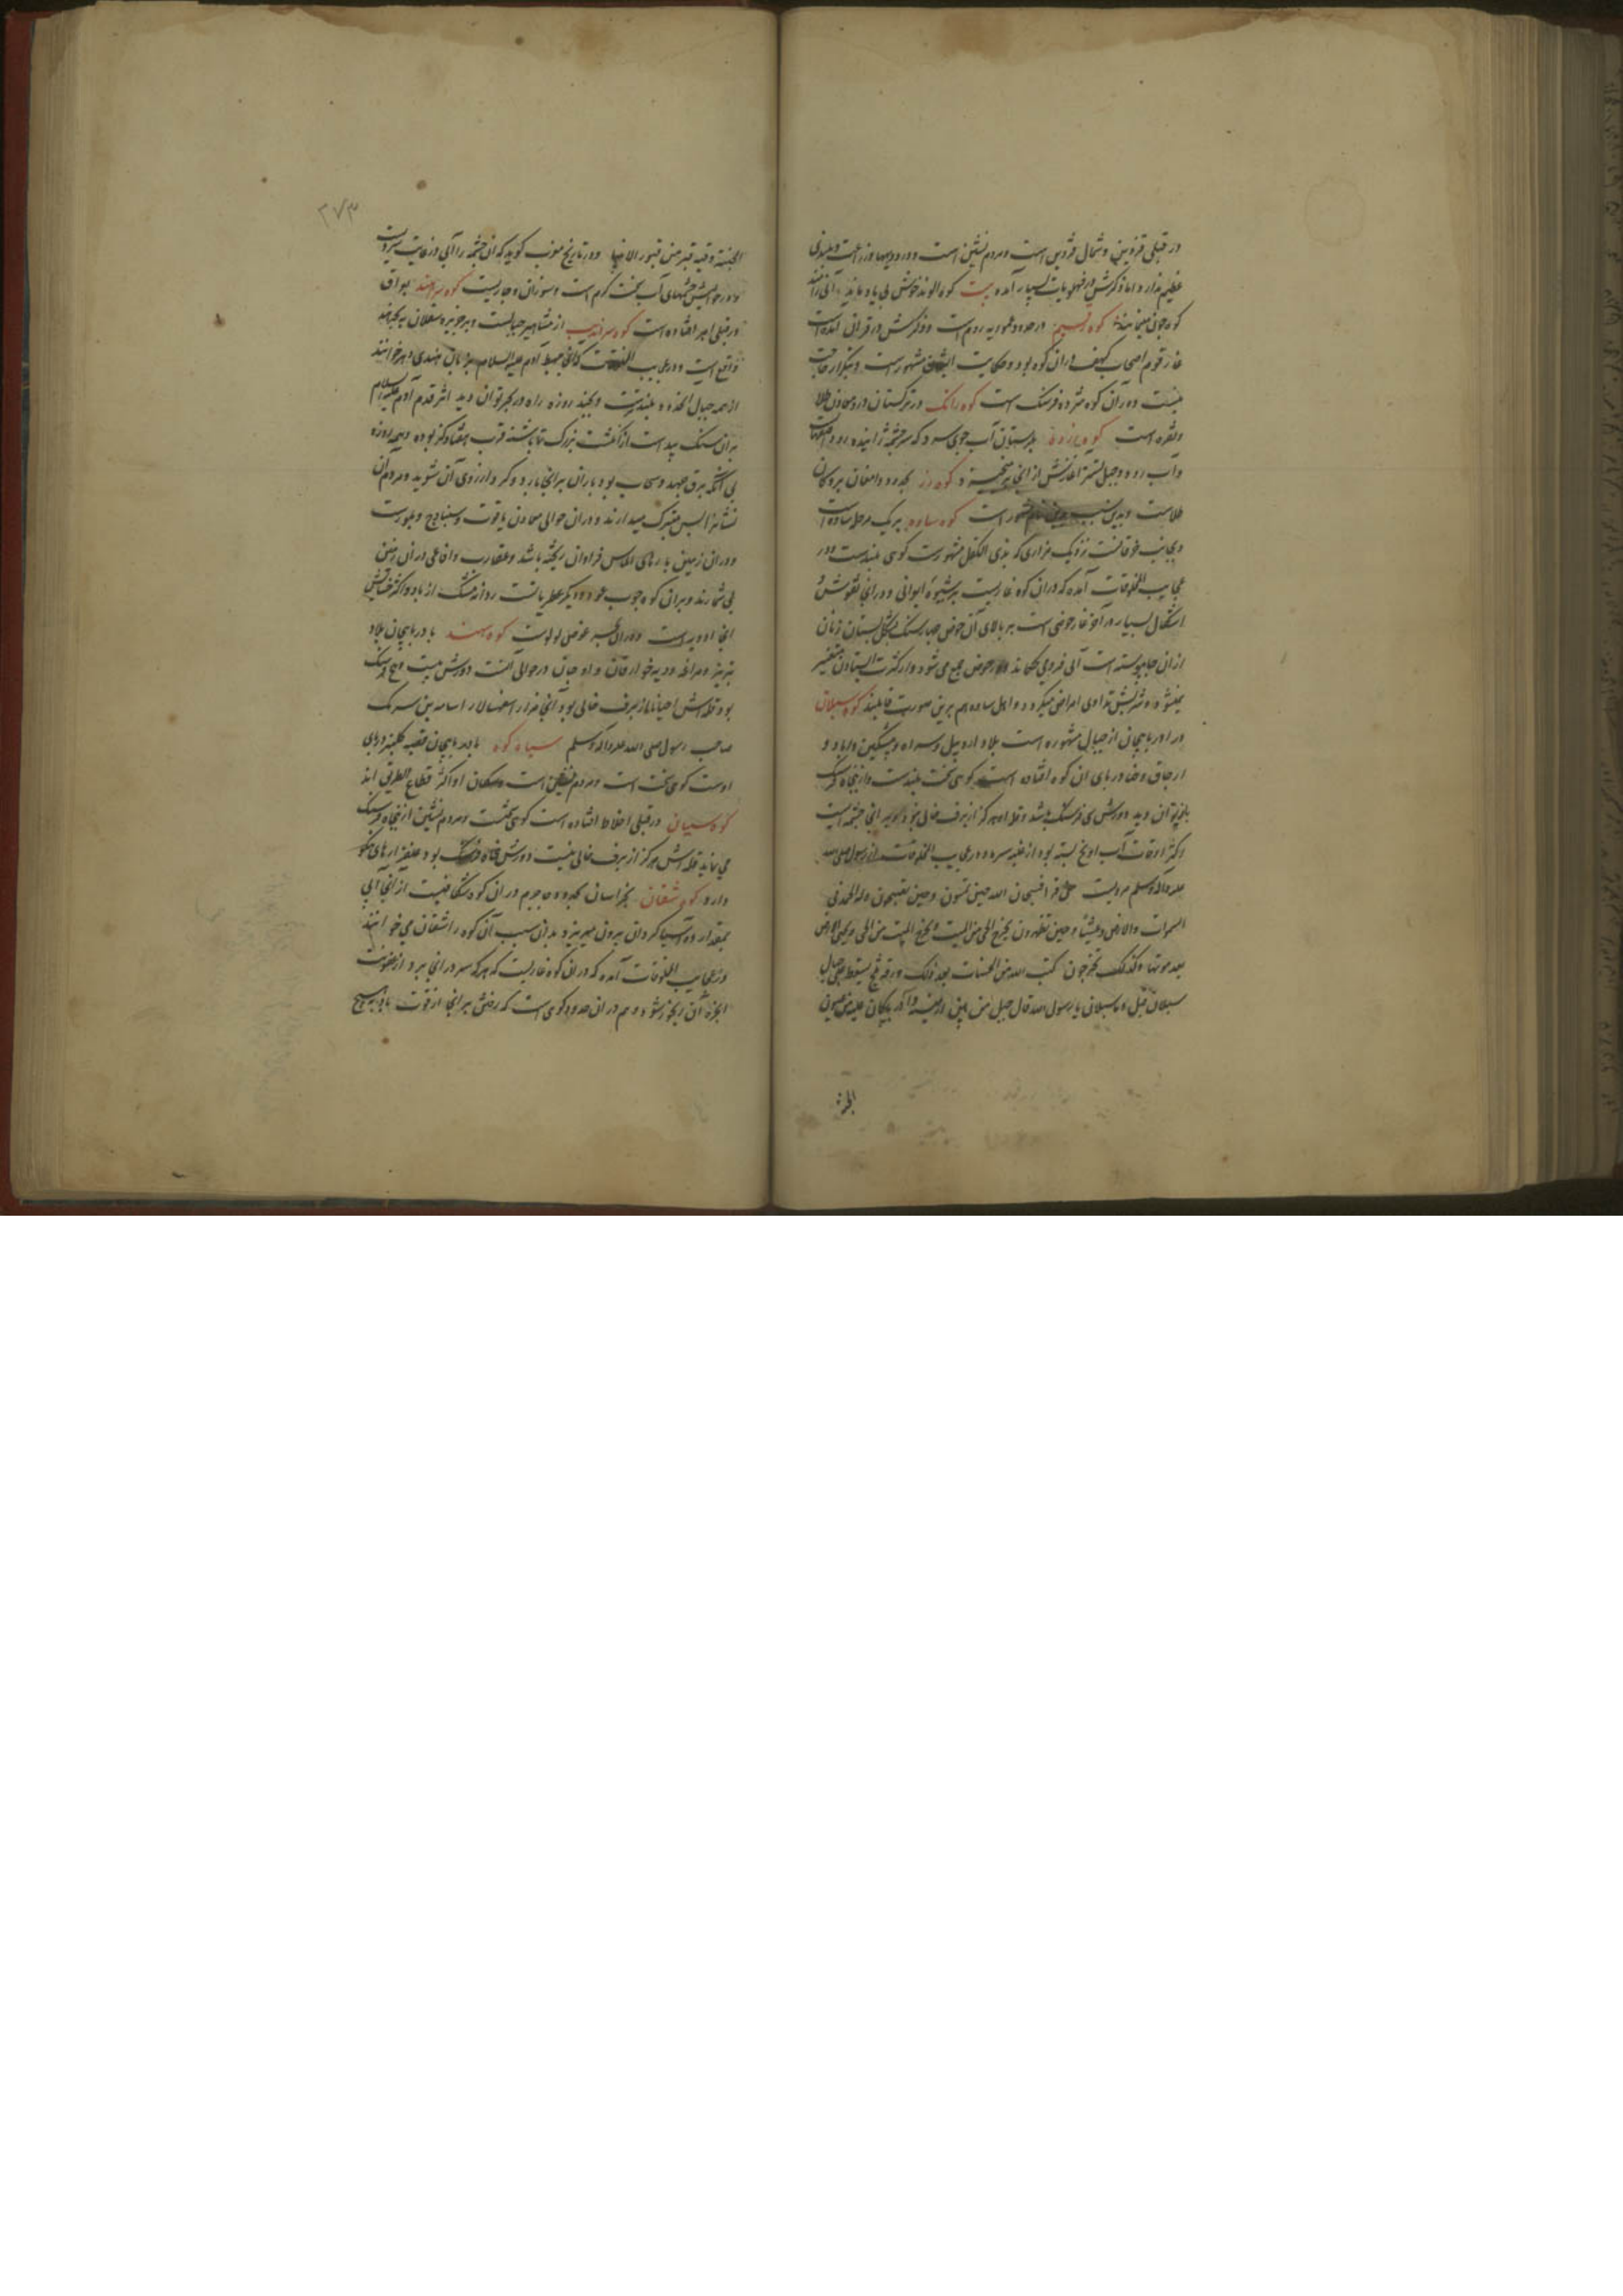 در قبلی قزوین و شمال قزوین است و مردم نشین است و در و دیهها و زراعت و بلندی
عظیم ندارد اما ذکرش در فهلویات بسیار آمده بیت کوه الوند خوش بی یاد
کوه رقیم در حدود عموریه روم است و ذکرش در قرآن آمده است
غار قوم اصحاب کهف در آن کوه بود و حکایت ایشان مشهور است و بتکرار حاجت
نیست دور آن کوه ده فرسنگ است کوه رانک در ترکستان درو معادن طلا
و نقره است کوه زرده بلرستان آب جوی سرد که سرچشمه زاینده رود
و آب رود دجیل تستر آغازش از انجا بر می‌خیزد کوه زر بحدود دامغان بروکان
طلاست و بدین سبب بدین نام مشهور است کوه ساوه بر یک مرحله ساوه است
و بجانب خرقانست نزدیک مزاری که بذی الکفل مشهورست کوهی بلندست و در
عجایب المخلوقات آمده که در آن کوه غاریست بر شیوه ایوانی و در آنجا نقوش و
اشکال بسیار در آخر غار حوضی است بر بالای آن حوض چهار سنگ بشکل پستان زنان
از آن جا پیوسته است آبی فرو می‌چکاند در حوض جمع می‌شود و از کثرت ایستادن متغیر
نمیشود و شربتش تداوی امراض میکردد و اهل ساوه هم برین صورت قایلند کوه سبلان
در اذربایجان از جبال مشهوره است بلاد اردبیل و سراه و پیشکین و اباد و
ارجاق و خیاو در پای آن کوه افتاده است کوهی سخت بلندست و از پنجاه فرسنگ
باز توان دید دورش سی فرسنگ باشد و قله او هرگز از برف خالی نبود و بر آنجا چشمه است
اکثر اوقات آب او یخ بسته بود از غلبه سرما و در عجایب المخلوقات از رسول صلی الله
علیه و آله و سلم مرویست من قرأ فسبحان الله حین تمسون و حین تصبحون و له الحمد فی
السموات و الارض و عشیا و حین تظهرون یخرج الحی من المیت و یخرج المیت من الحی و یحیی الارض
بعد موتها و کذلک تخرجون کتب الله من الحسنات بعدد ذلک ورقه ثلج یسقط علی جبال
سبلان قیل و ما سبلان یا رسول الله قال جبل من بین ارمینیه و آذربایگان علیه عین من عیون
الجنة
۳۷۳
الجنة و فیه قبر من قبور الانبیا و در تاریخ مغرب گوید که آن چشمه را آبی در غایت سردیست
و در حوالیش چشمهای آب سخت گرم است و سوزان و جاریست کوه سراهند بو اق
در قبلی اهر افتاده است کوه سراندیب از مشاهیر جبالست و بر جزیره سیلان به بحر هند
واقع است و در عجایب المخلوقات که آنجا مهبط آدم علیه السلام بزبان هندی دهر خوانند
از همه جبال بلندترست و بچند روزه راه در بحر توان دید اثر قدم آدم علیه السلام
بر آن سنگ پیداست از انگشت بزرگ تا پاشنه قرب هفتاد گز بوده و همه روزه
بی آنکه برق جهد و سحاب بود باران بر آنجا بارد و گرد از روی آن شوید و مردم آن
نشانه را بس متبرک میدارند و در آن حوالی معادن یاقوت و سنباده و بلورست
و در آن زمین پارهای الماس فراوان ریخته باشد و عقارب و افاعی در آن زمین
بی شمارند و بر آن کوه چوب عود و دیگر عطریاتست و دابه مشک از باد و اکثر حشایش
آنجا ادویه است و در آن بحر غوص لولوست کوه سهند باذربایجان بلاد
تبریز و مراغه و دیه خوارقان و اوجان در حوالی آنست دورش بیست و پنج فرسنگ
بود قله اش احیانا از برف خالی بود آنجا مزار اسفهسالار اسامه بن سریک
صاحب رسول صلی الله علیه و آله و سلم سیاه کوه باذربایجان قصبه کلنبر در پای
اوست کوهی سخت است و مردم نشین است و سکان او اکثر قطاع الطریق اند
کوه سیپان در قبلی اخلاط افتاده است کوهی سخت و مردم نشین از پنجاه فرسنگ
می نماید قله اش هرگز از برف خالی نیست دورش پنجاه فرسنگ بود و علفزارهای نیکو
دارد کوه شقان بخراسان بحدود جاجرم در آن کوه شکافیست از آنجا آبی
بمقدار دو آسیا گردان بیرون میریزد بدان سبب آن کوه را شقان می خوانند
در عجایب المخلوقات آمده که در آن کوه غاریست که هر که سر در آنجا برد از عفونت
ابخره آن رنجور شود و هم در آن حدود کوهی است که رفتن بر آنجا از قوت باد به هیچ